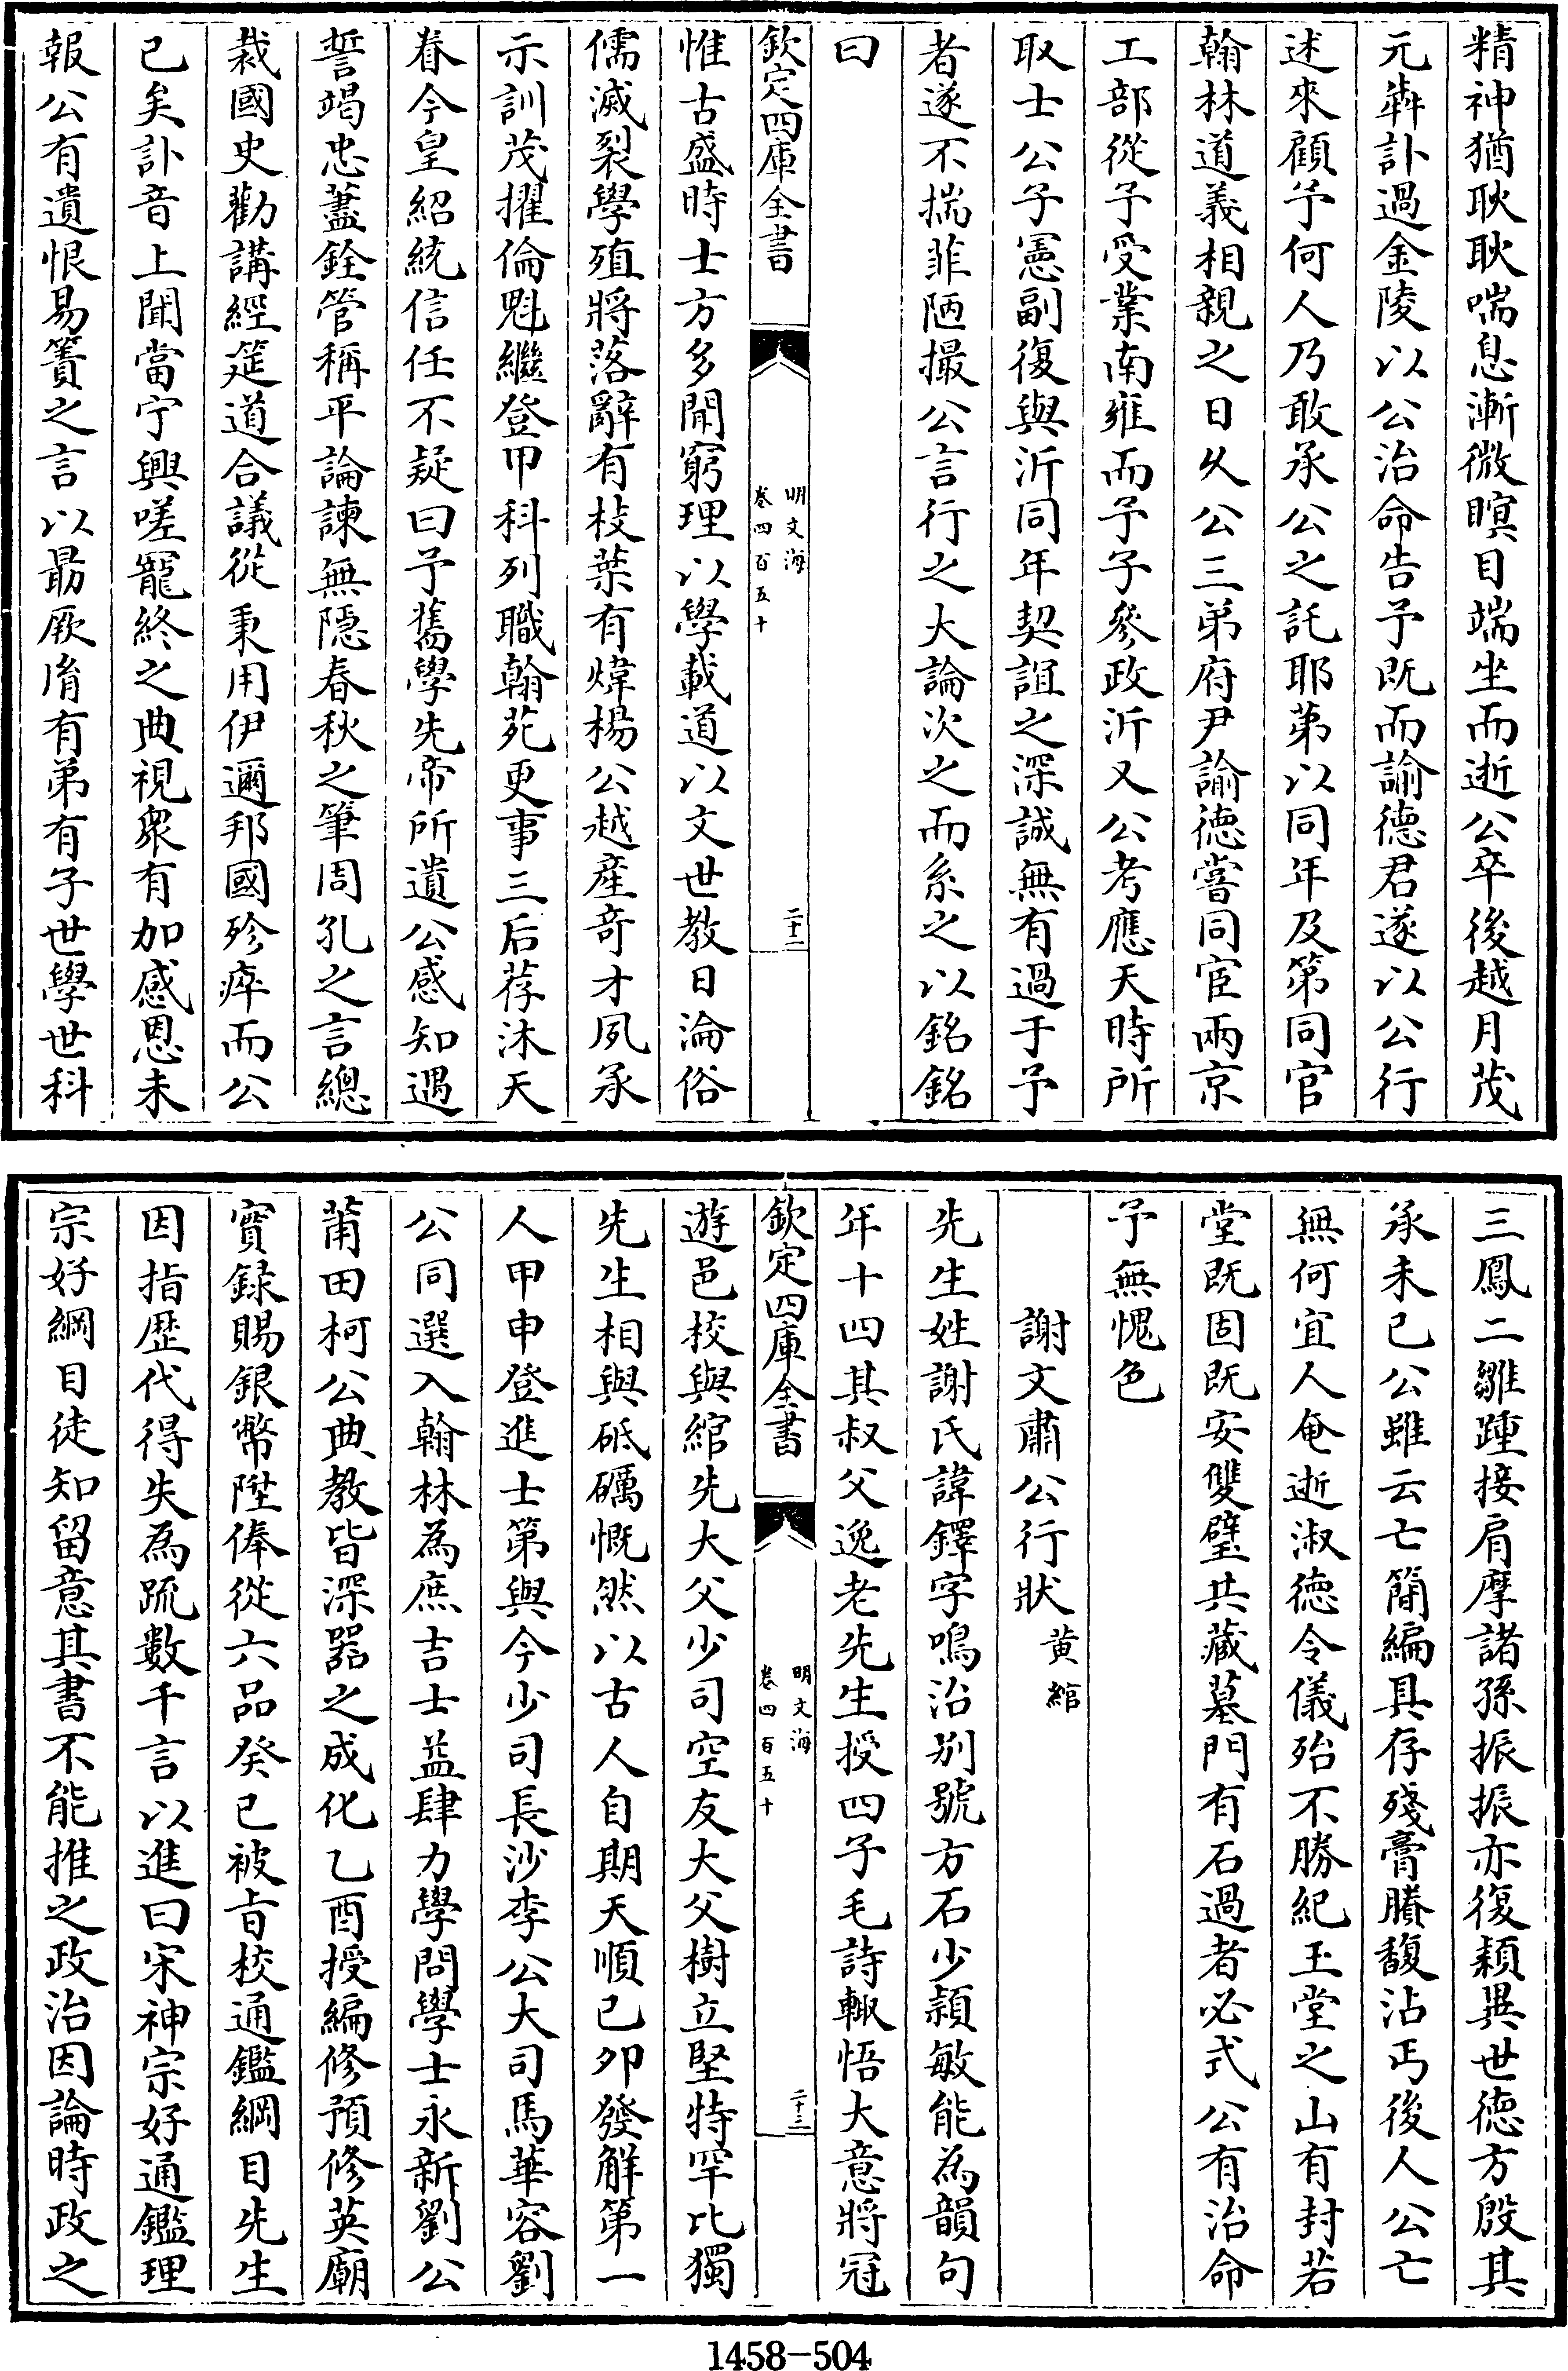 精神猶耿耿喘息漸微瞑目端坐而逝公卒後越月茂
元犇訃過金陵以公治命告予既而諭德君遂以公行
述來顧予何人乃敢承公之託耶第以同年及第同官
翰林道義相親之日久公三弟府尹諭德嘗同宦兩京
工部從子受業南雍而予子參政沂又公考應天時所
取士公子憲副復與沂同年契誼之深誠無有過于予
者遂不揣菲陋撮公言行之大論次之而系之以銘銘
曰
欽定四庫全書
明文海
卷四百五十
二十二
惟古盛時士方多聞窮理以學載道以文世教日淪俗
儒滅裂學殖將落辭有枝葉有煒楊公越產奇才夙承
示訓茂擢倫魁繼登甲科列職翰苑更事三后荐沐天
眷今皇紹統信任不疑曰予舊學先帝所遺公感知遇
誓竭忠藎銓管稱平論諫無隱春秋之筆周孔之言總
裁國史勸講經筵道合議從秉用伊邇邦國殄瘁而公
已矣訃音上聞當宁興嗟寵終之典視衆有加感恩未
報公有遺恨易簀之言以勗厥胤有弟有子世學世科
三鳳二雛踵接肩摩諸孫振振亦復頴異世德方殷其
承未已公雖云亡簡編具存殘膏賸馥沾丐後人公亡
無何宜人奄逝淑德令儀殆不勝紀玉堂之山有封若
堂既固既安雙璧共藏墓門有石過者必式公有治命
予無愧色
謝文肅公行狀 黃綰
先生姓謝氏諱鐸字鳴治別號方石少頴敏能為韻句
年十四其叔父逸老先生授四子毛詩輙悟大意將冠
欽定四庫全書
明文海
卷四百五十
二十三
遊邑校與綰先大父少司空友大父樹立堅特罕比獨
先生相與砥礪慨然以古人自期天順己卯發解第一
人甲申登進士第與今少司長沙李公大司馬華容劉
公同選入翰林為庶吉士益肆力學問學士永新劉公
莆田柯公典教皆深器之成化乙酉授編修預修英廟
實録賜銀幣陞俸從六品癸已被旨校通鑑綱目先生
因指歴代得失為疏數千言以進曰宋神宗好通鑑理
宗好綱目徒知留意其書不能推之政治因論時政之
1458-504